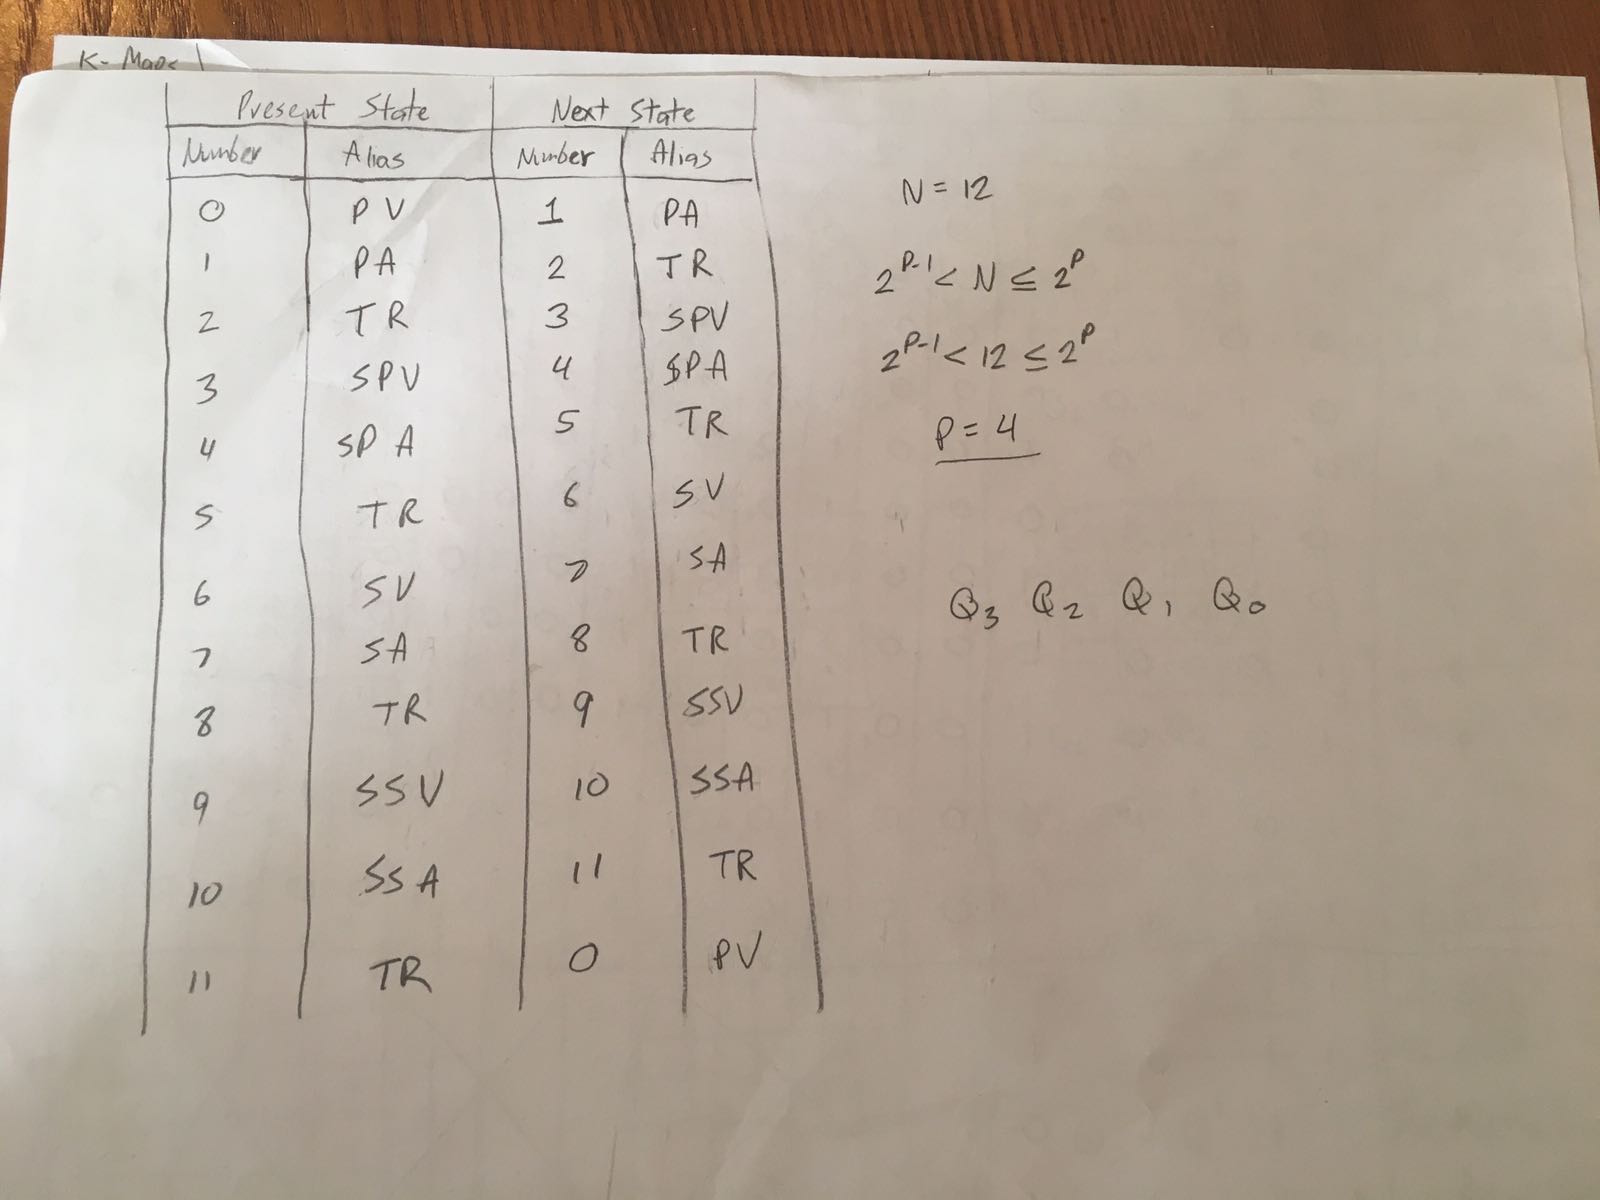 K-Maps
Present State Next State
Number Alias Number Alias
0 PV 1 PA
1 PA 2 TR
2 TR 3 SPV
3 SPV 4 SPA
4 SPA 5 TR
5 TR 6 SV
6 SV 7 SA
7 SA 8 TR
8 TR 9 SSV
9 SSV 10 SSA
10 SSA 11 TR
11 TR 0 PV
N = 12
2^{P-1} < N ≤ 2^P
2^{P-1} < 12 ≤ 2^P
P = 4
Q₃ Q₂ Q₁ Q₀